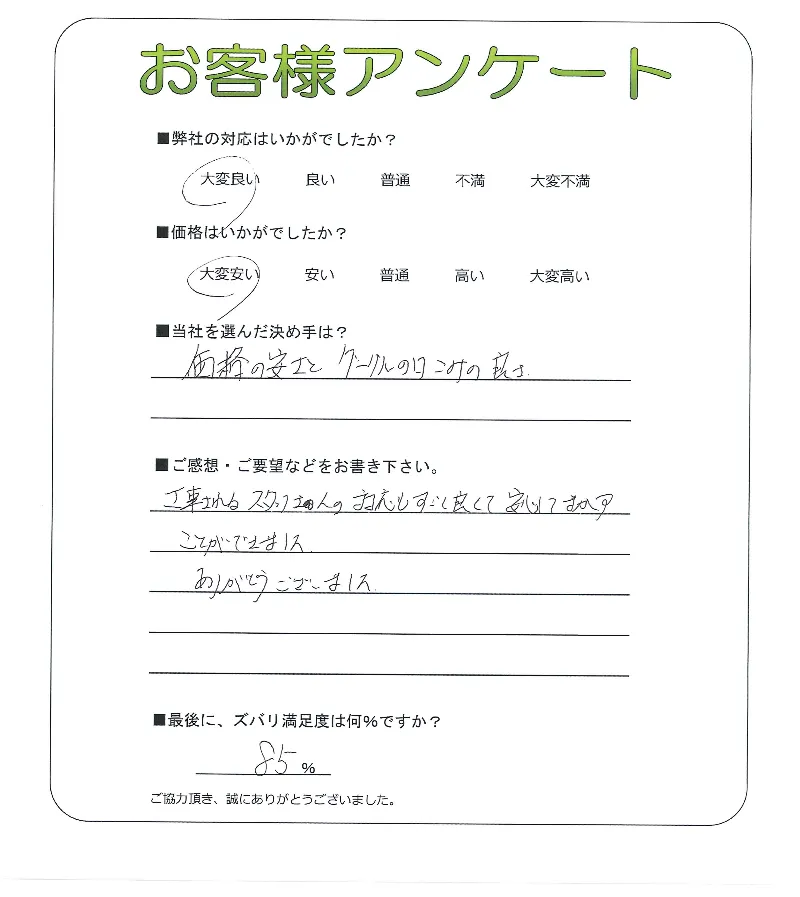 お客様アンケート
■弊社の対応はいかがでしたか？
大変良い 良い 普通 不満 大変不満
■価格はいかがでしたか？
大変安い 安い 普通 高い 大変高い
■当社を選んだ決め手は？
価格の安さと グーグルの口こみの良さ
■ご感想・ご要望などをお書き下さい。
工事される スタッフさんの 対応もすごく良くて 安心してまかす
ことができました
ありがとうございました
■最後に、ズバリ満足度は何％ですか？
85 %
ご協力頂き、誠にありがとうございました。